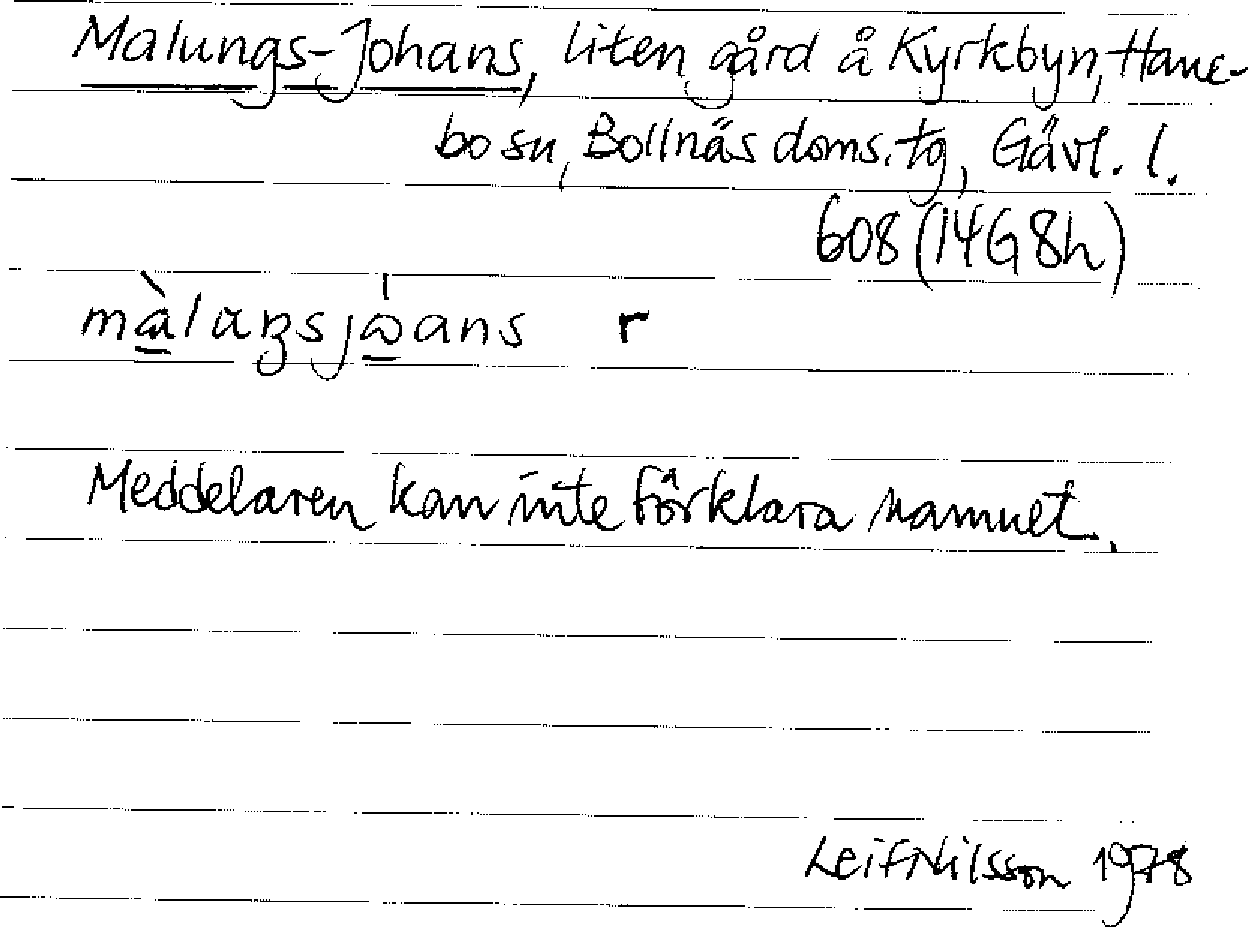 Malungs-Johans, liten gård å Kyrkbyn, Hane-
bo sn, Bollnäs doms. tg, Gävl. l.
608 (14G 8h)
r
Meddelaren kan inte förklara namnet.
Leif Nilsson 1978